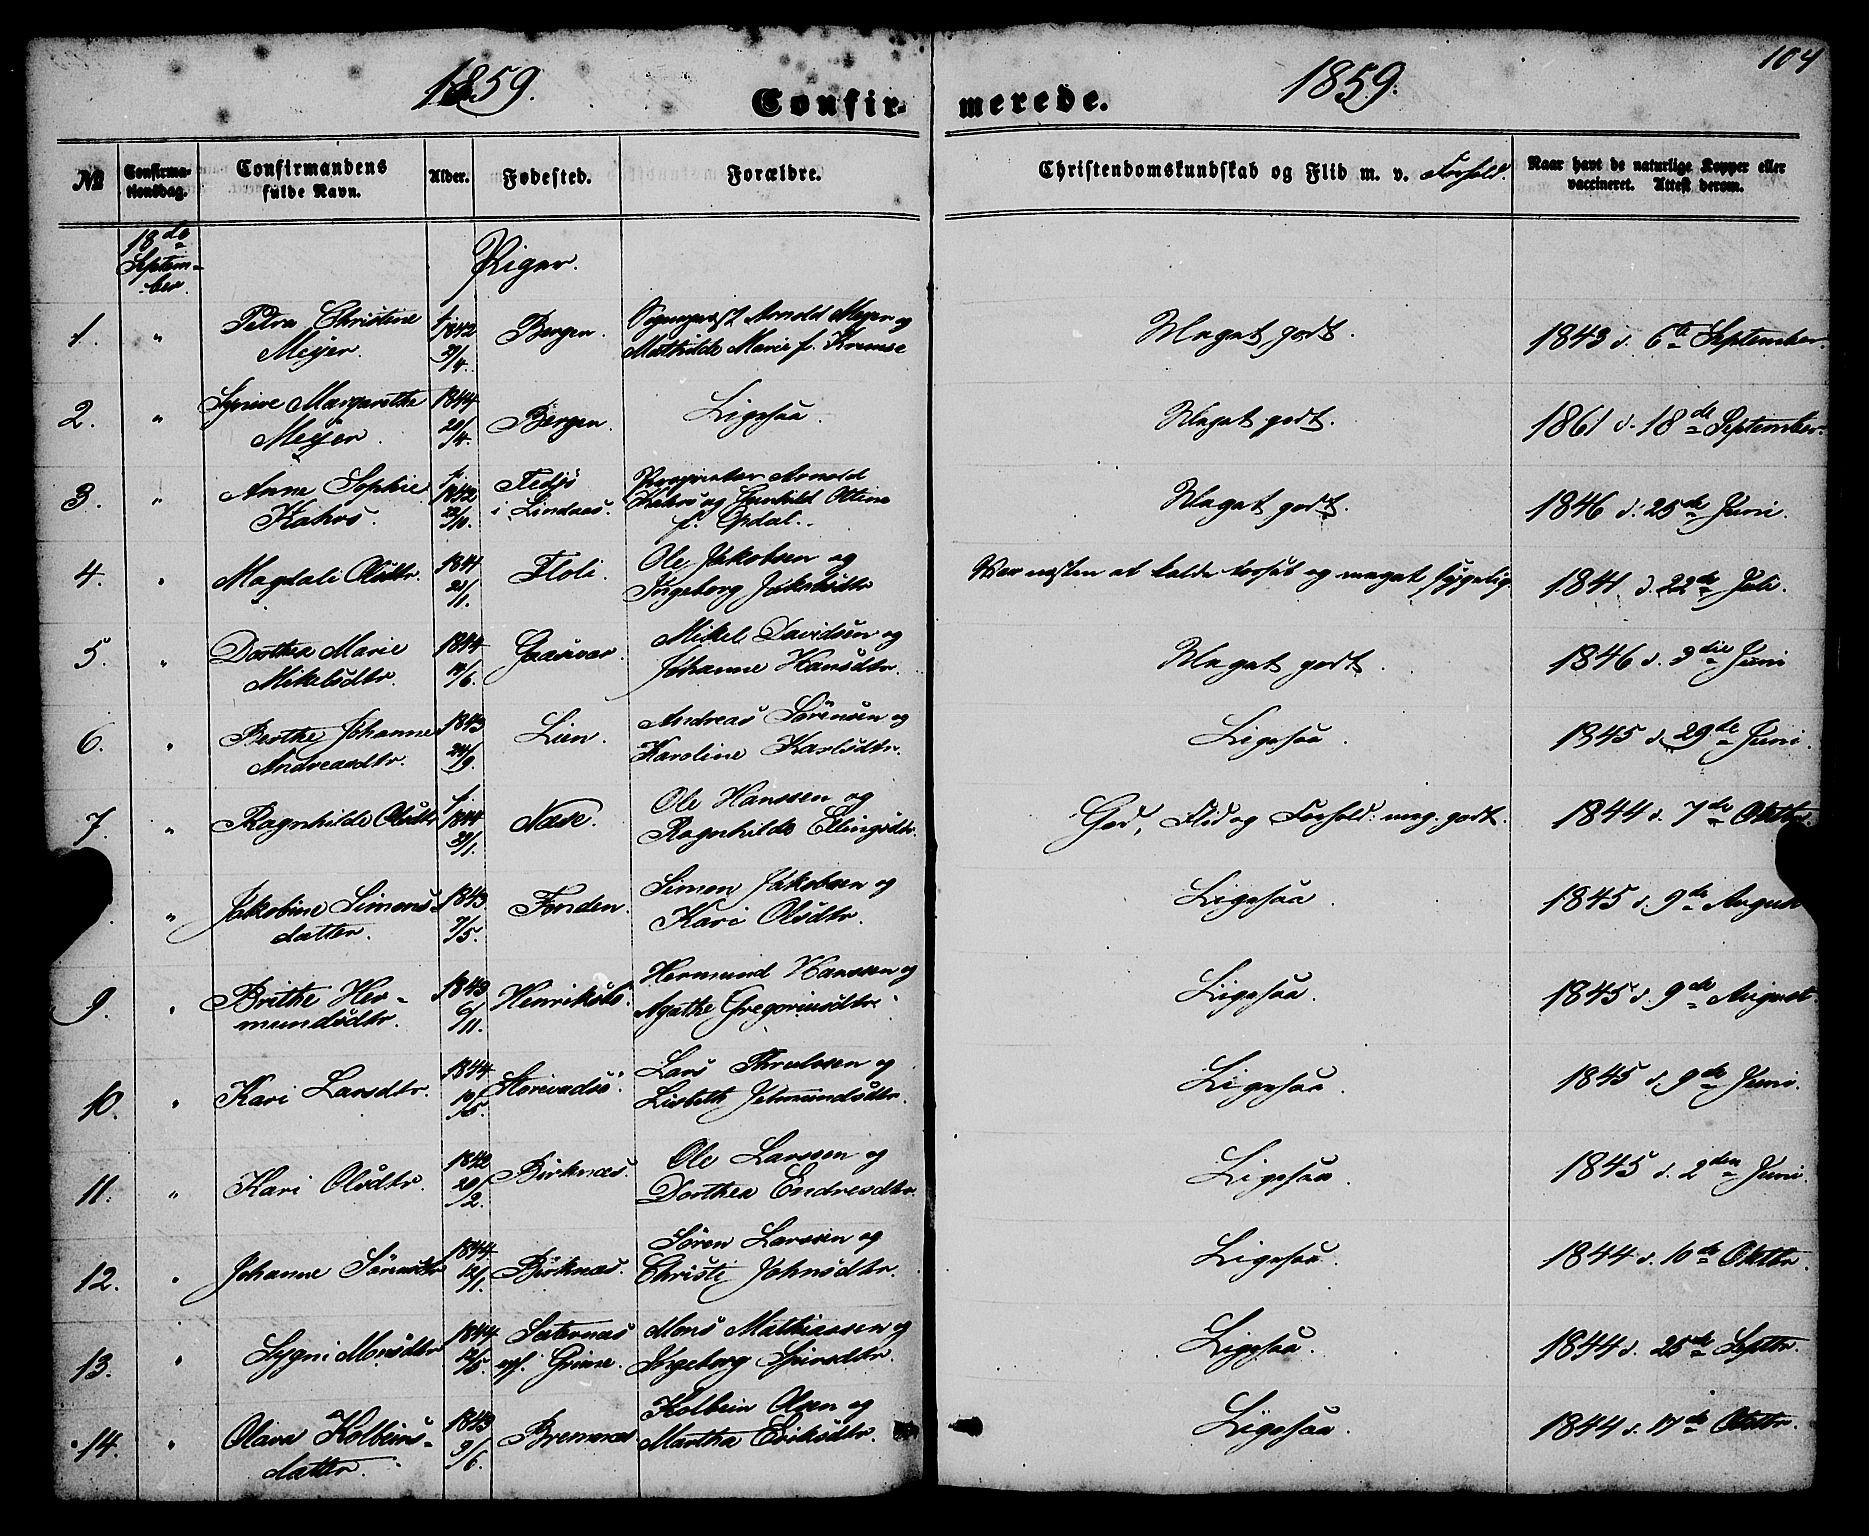 104
1859. Confirmerede. 1859.
№ Confirmationsdag. Confirmandens fulde Navn. Alder. Fødested. Forældre. Christendomskundskab og Flid m. v. Forhold. Naar havt de naturlige Kopper eller vaccineret. Attest derom.
18de September Piger.
1. " Petra Christine Meyer. 1842 29/4. Bergen. Sognepræst Arnold Meyer og Mathilde Marie f. Meget godt. 1843 d. 6te September.
2. " Margarethe Meyer. 1844 20/4. Bergen. Ligesaa. Meget godt. 1861 d. 18de September.
3. " Anne Sophie Kahrs. 1842 /10. Fedjø i Lindaas. Proprietær Arnold Kahrs og Gunhild Otline f. Opdal. Meget godt. 1846 d. 25de Juni.
4. " Magdali Olsdtr. 1841 21/1. Floli. Ole Jakobsen og Ingeborg Jakobsdtr Var næsten at kalde og meget sygelig. 1841 d. 22de Juli.
5. " Dorthea Marie Mikelsdtr. 1844 /6. Gaasvær. Mikel Davidsen og Johanne Hansdtr. Meget godt. 1846 d. 3die Juni
6. " Berthe Johanne Andreasdtr. 1843 24/9. Lien. Andreas Sørensen og Karoline Karlsdtr. Ligesaa. 1845 d. 29de Juni.
7. " Ragnhilde Olsdtr 1844 /1. Næse. Ole Hanssen og Ragnhilde Ellingsdtr. God, Flid og Forhold: meg. godt. 1844 d. 7de Oktbr.
" Jakobine Simonsdatter. 1843 7/5. Fonden. Simon Jakobsen og Kari Olsdtr. Ligesaa. 1845 d. 9de August
9. " Brithe Hermundsdtr. 1843 6/11. Henriksbø. Hermund Hanssen og Agathe Gregoriusdtr. Ligesaa. 1845 d. 9de August.
10. " Kari Larsdtr. 1844 /5. Lars Thrulssen og Lisbeth Jetmundsdtr. Ligesaa. 1845 d. 9de Juni.
11. " Kari Olsdtr. 1842 20/2. Birknæs. Ole Larssen og Dorthea Endresdtr. Ligesaa. 1845 d. 2den Juni.
12. " Johanne Sørensdtr 1844 12/1. Birknæs. Søren Larssen og Christi Johnsdtr. Ligesaa. 1844 d. 10de Oktbr.
13. " Sygni Monsdtr 1844 12/5. Sæternæs Mons Mathiassen og Ingeborg Ligesaa. 1844 d. 25de Septbr.
14. " Olava Kolbeinsdatter. 1843 9/6. Bremnæs. Kolbein Olsen og Martha Eriksdtr. Ligesaa. 1844 d. 17de Oktbr.